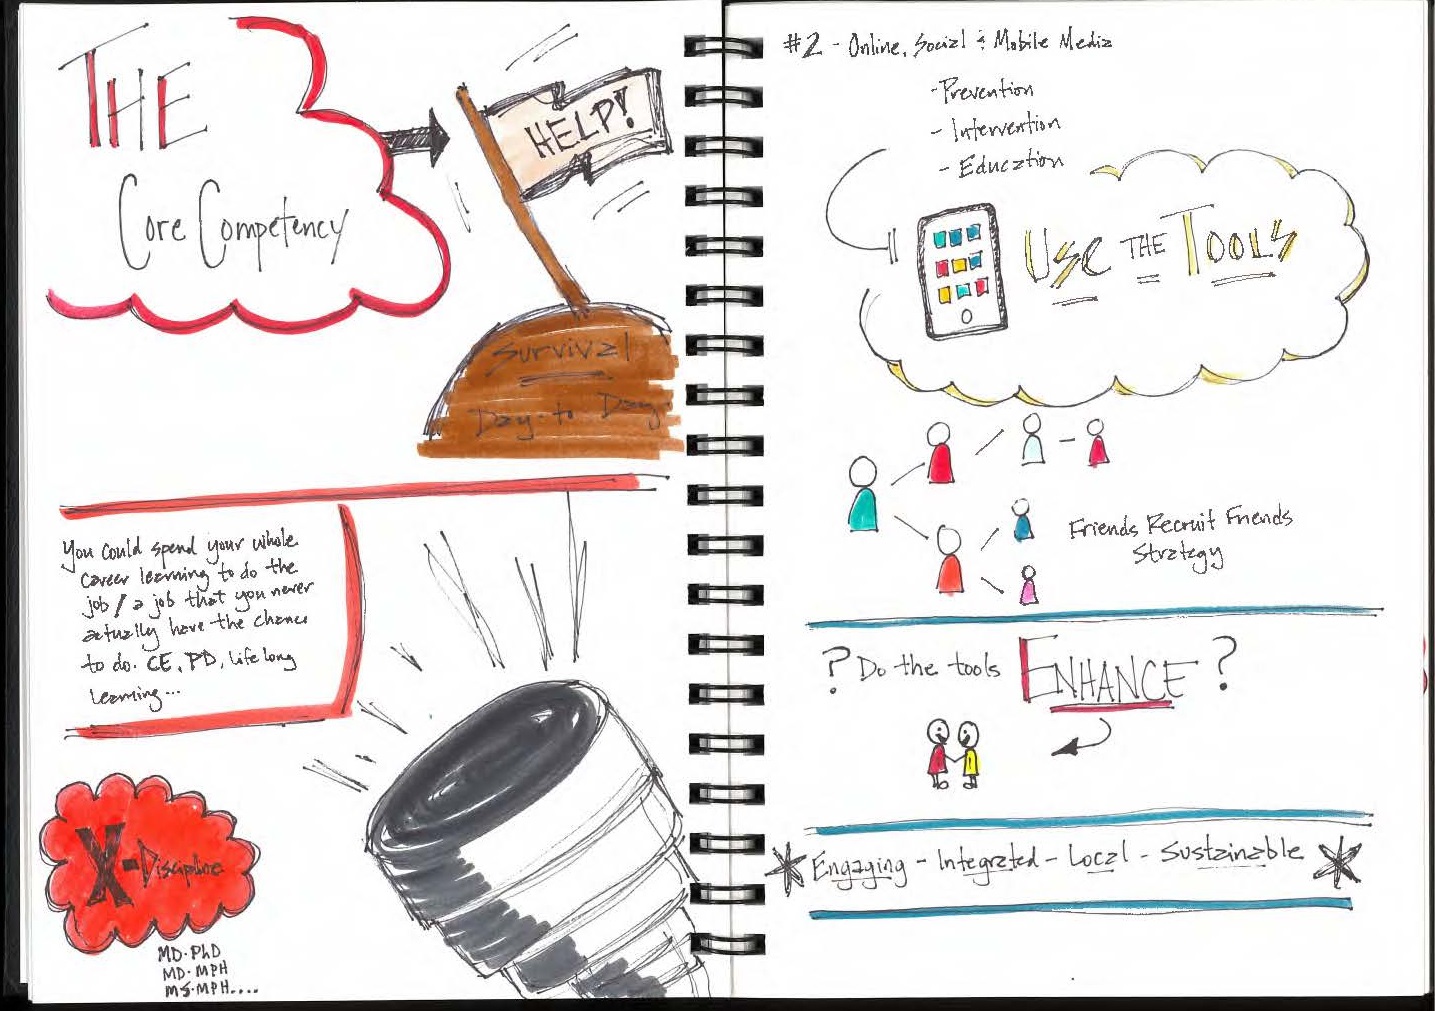 THE
Core Competency
HELP!
Survival
Day-to Day
You could spend your whole
career learning to do the
job/a job that you never
actually have the chance
to do. CE, PD, life long
learning...
X-Discipline
MD·PhD
MD·MPH
MS·MPH....
#2 - Online, Social & Mobile Media
-Prevention
- Intervention
- Education
USE THE TOOLS
Friends Recruit Friends
Strategy
? Do the tools ENHANCE ?
Engaging - Integrated - Local - Sustainable